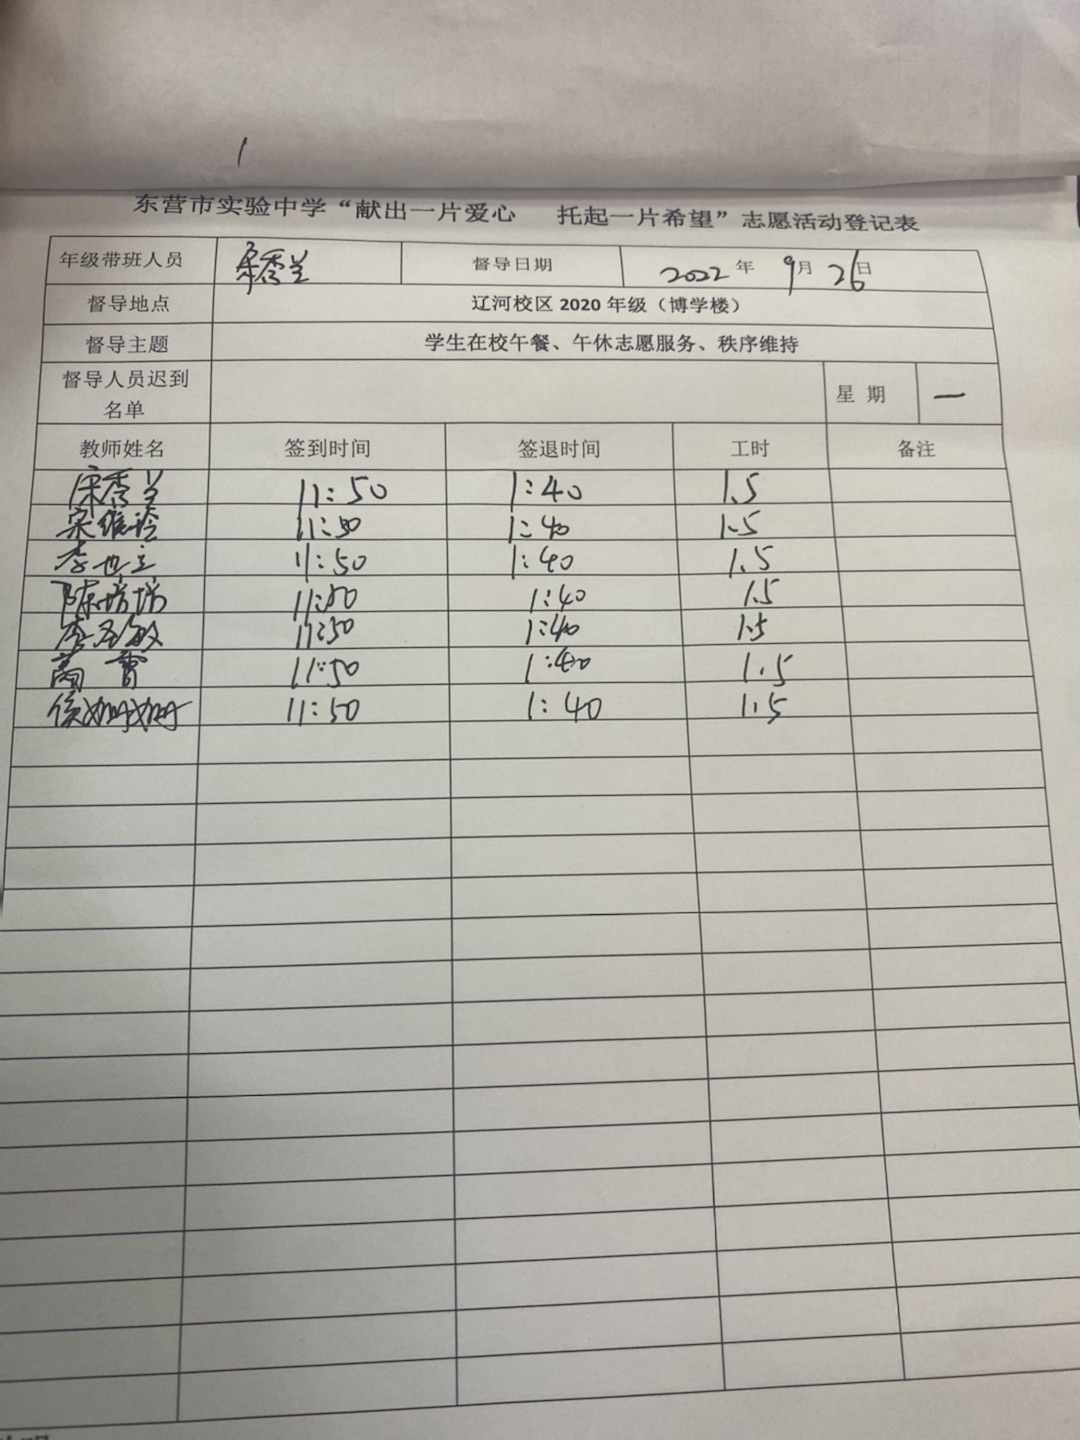 东营市实验中学“献出一片爱心 托起一片希望”志愿活动登记表
年级带班人员 宋秀兰 督导日期 2022年9月26日
督导地点 辽河校区2020年级（博学楼）
督导主题 学生在校午餐、午休志愿服务、秩序维持
督导人员迟到名单 星期 一
教师姓名 签到时间 签退时间 工时 备注
宋秀兰 11:50 1:40 1.5
宋维玲 11:50 1:40 1.5
李世立 11:50 1:40 1.5
陈培培 11:50 1:40 1.5
李圣敏 11:50 1:40 1.5
11:50 1:40 1.5
侯姗姗 11:50 1:40 1.5